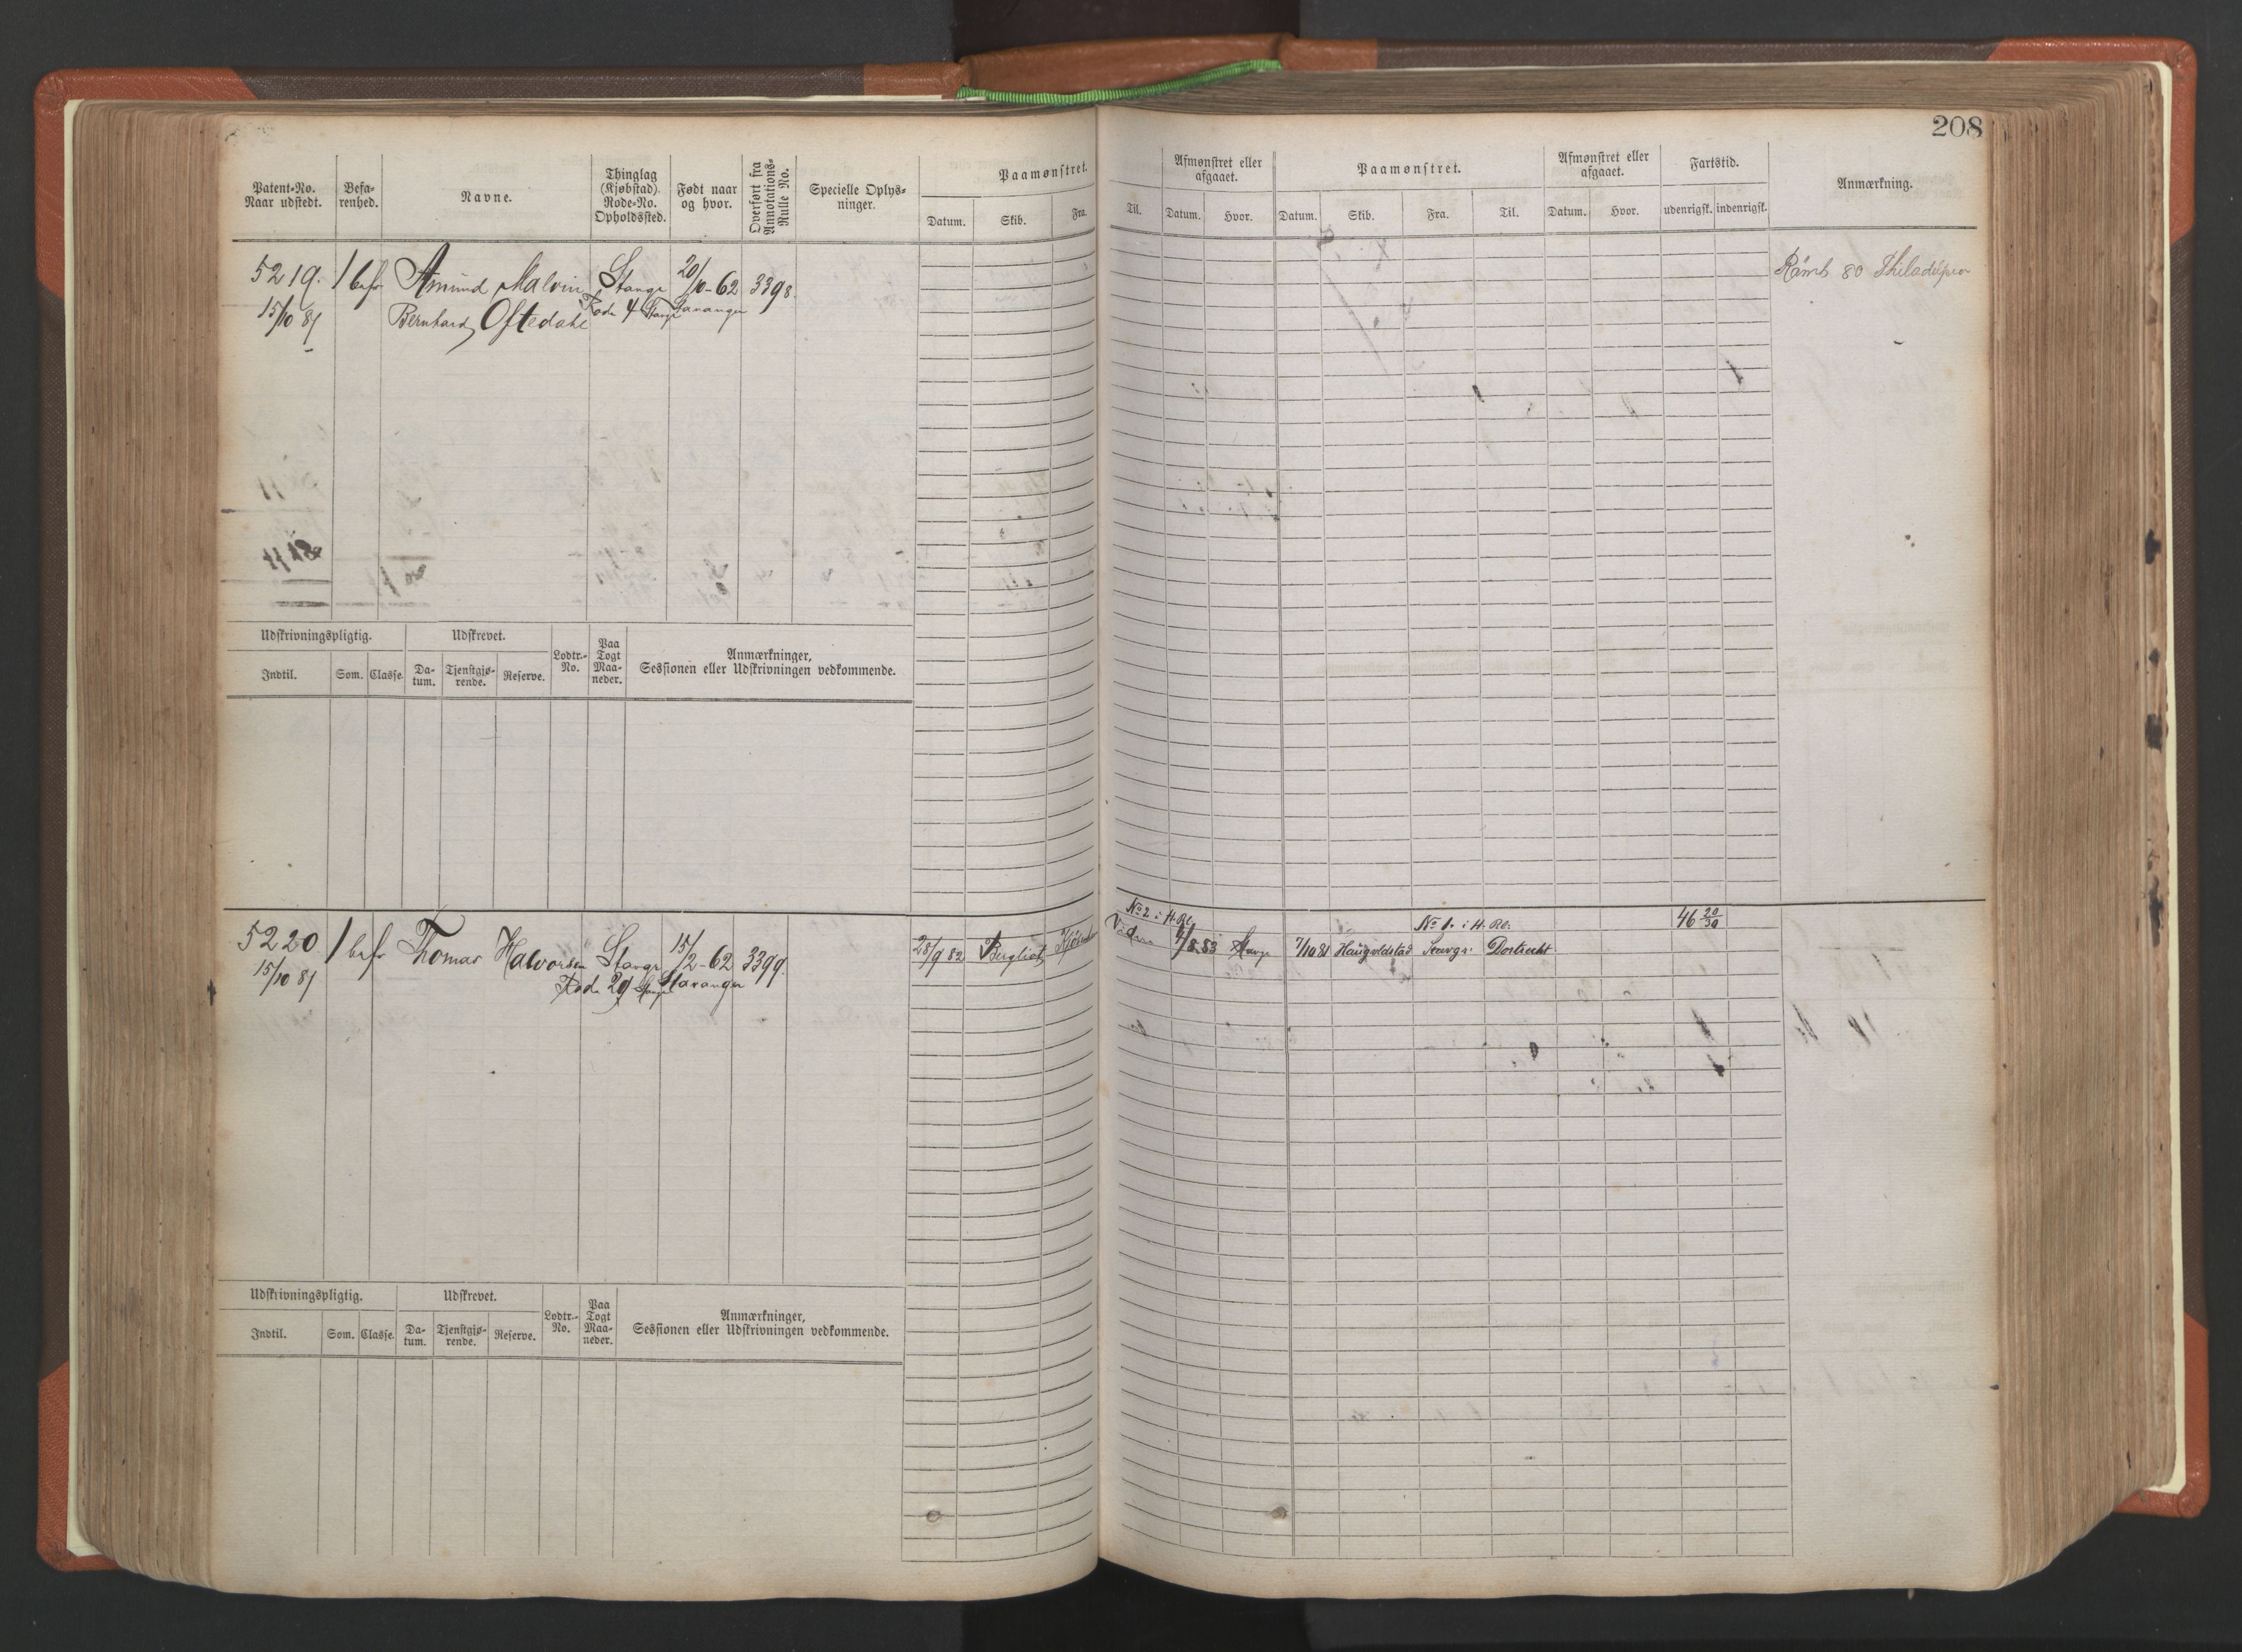 208
Patent-No.
Naar udstedt.
Befa-
renhed.
Navne.
Thinglag
(Kjøbstad).
Rode-No.
Opholdssted.
Født naar
og hvor.
Overført fra
Annotations-
Rulle No.
Specielle Oplys-
ninger.
Paamønstret.
Datum.
Skib.
Fra.
Til.
Afmønstret eller
afgaaet.
Datum.
Hvor.
Paamønstret.
Datum.
Skib.
Fra.
Til.
Afmønstret eller
afgaaet.
Datum.
Hvor.
Fartstid.
udenrigsk.
indenrigsk.
Anmærkning.
5219.
15/10 81
1 bef
Amund Malvin
Bernhard Oftedahl
Stavgr
Rode 4 Stavgr
20/10-62
Stavanger
3398
Rømt 80 Philadelphia
Udskrivningspligtig.
Udskrevet.
Lodtr.-
No.
Paa
Togt
Maa-
neder.
Anmærkninger,
Sessionen eller Udskrivningen vedkommende.
Indtil.
Som.
Classe.
Da-
tum.
Tjenstgjø-
rende.
Reserve.
5220
15/10 81
1 bef
Thomas Halvorsen
Stavgr
Rode 29 Stavgr
15/2-62
Stavanger
3399.
28/9 82
Bergliot
No 2 i H. Rl.
8.83
Stavgr
No 1. i H. Rl.
7/10 81
Haugvaldstad
Stavgr
Dortrecht
46 20/30
Udskrivningspligtig.
Udskrevet.
Lodtr.-
No.
Paa
Togt
Maa-
neder.
Anmærkninger,
Sessionen eller Udskrivningen vedkommende.
Indtil.
Som.
Classe.
Da-
tum.
Tjenstgjø-
rende.
Reserve.